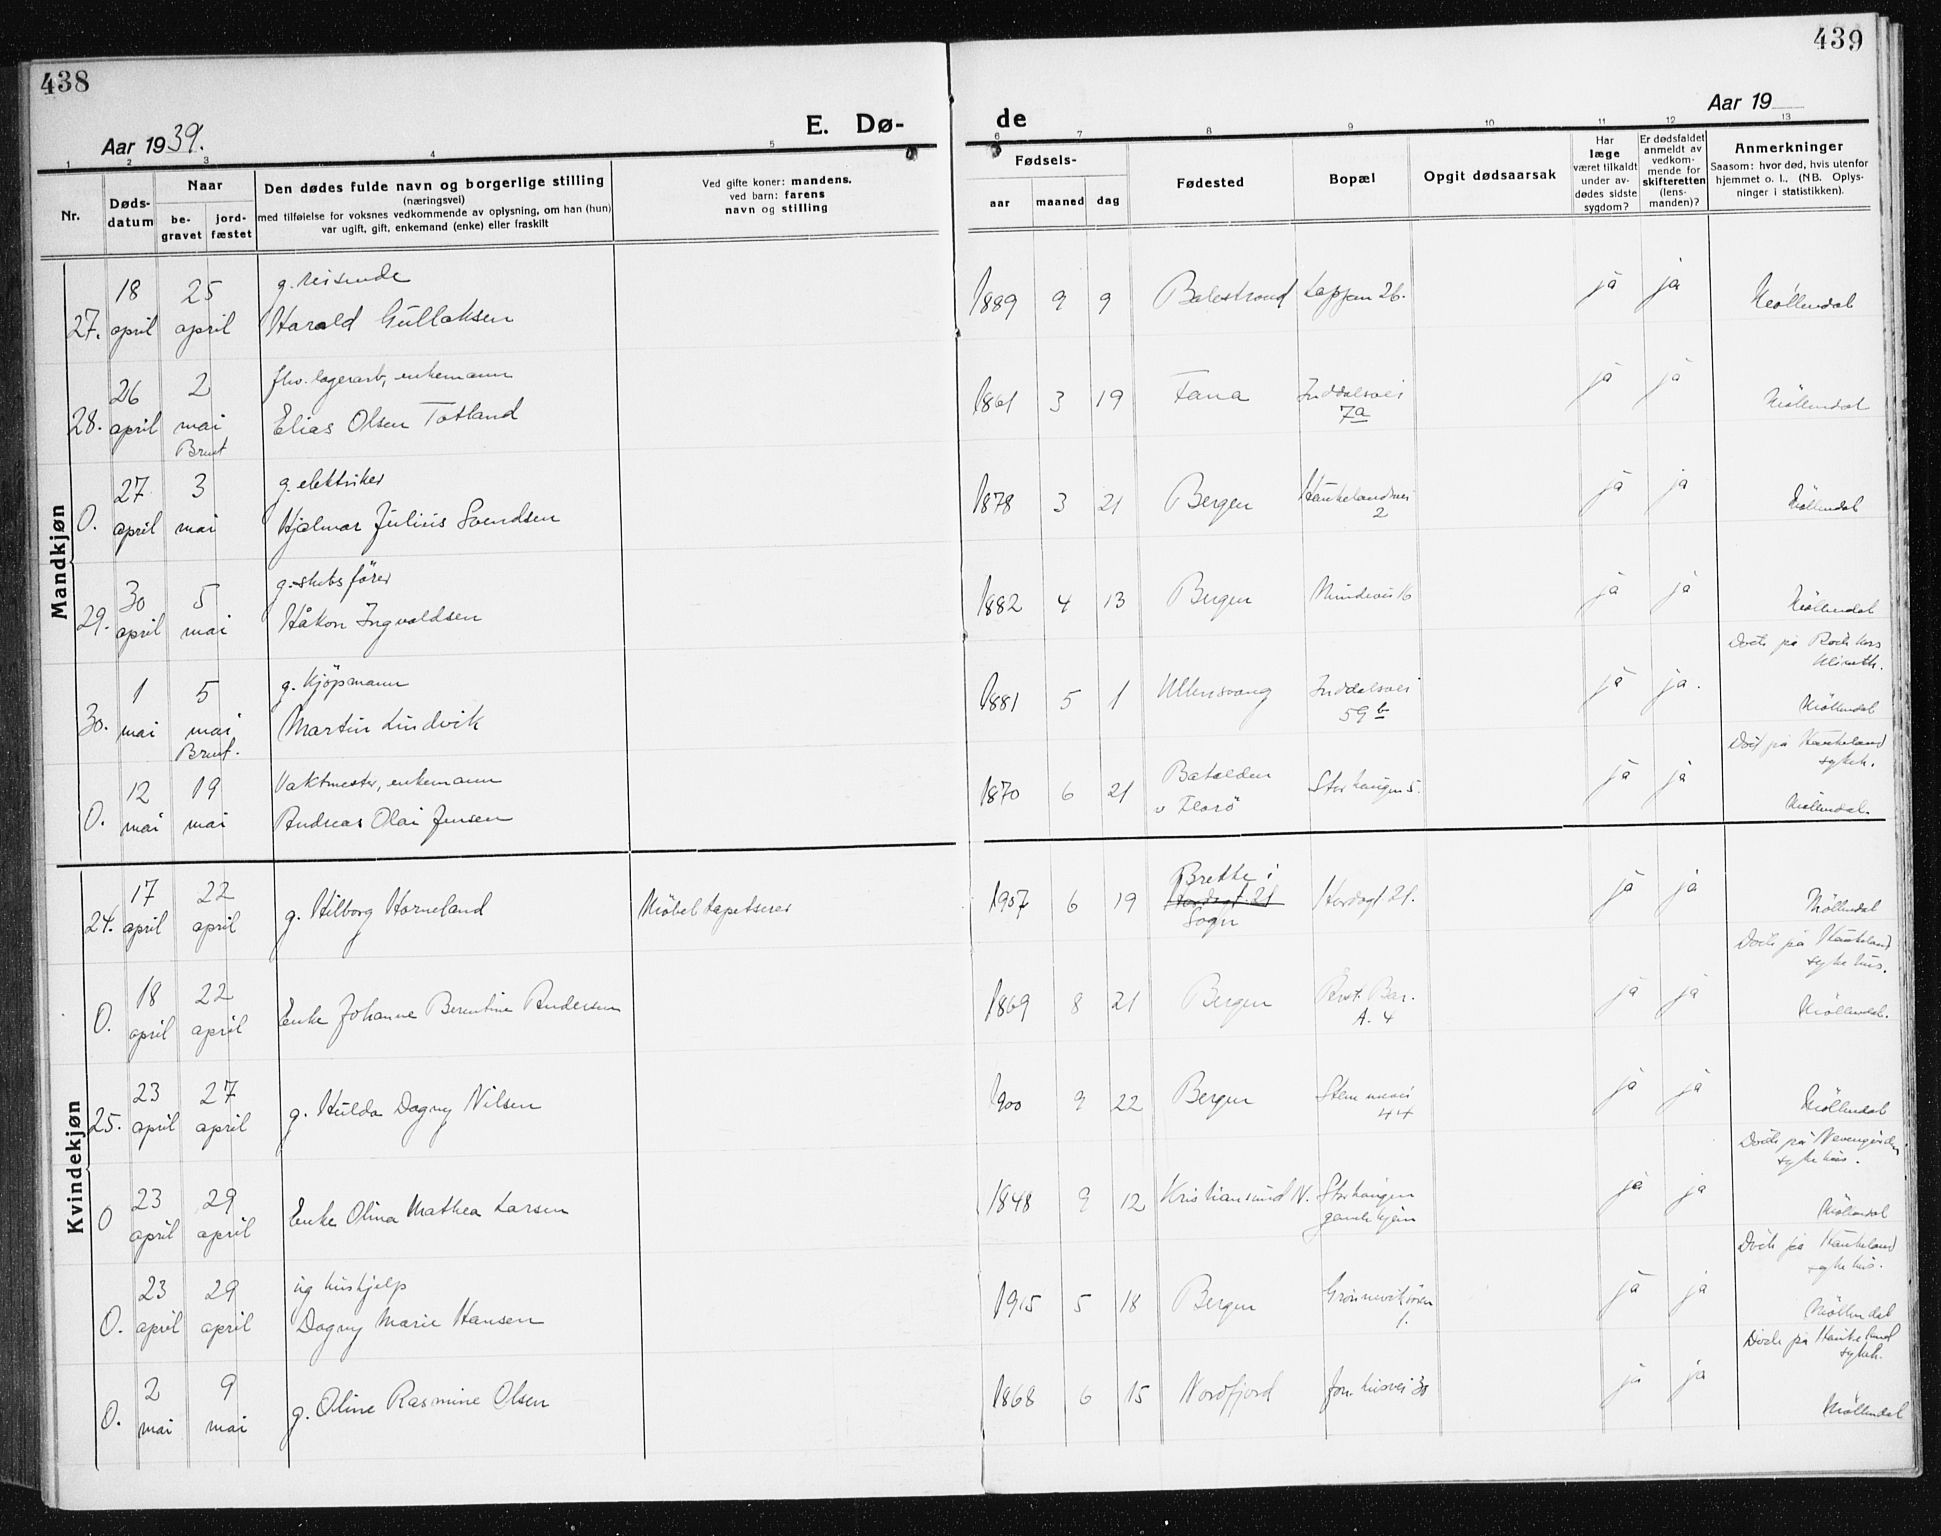 438
439
Aar 1939.
E. Dø-
de
Aar 19
1 2 3 4 5 6 7 8 9 10 11 12 13
Nr.
Døds-
datum
Naar
be-
gravet
jord-
fæstet
Den dødes fulde navn og borgerlige stilling
(næringsvei)
med tilføielse for voksnes vedkommende av oplysning, om han (hun)
var ugift, gift, enkemand (enke) eller fraskilt
Ved gifte koner: mandens.
ved barn: farens
navn og stilling
Fødsels-
aar maaned dag
Fødested
Bopæl
Opgit dødsaarsak
Har
læge
været tilkaldt
under av-
dødes sidste
sygdom?
Er dødsfaldet
anmeldt av
vedkom-
mende for
skifteretten
(lens-
manden)?
Anmerkninger
Saasom: hvor død, hvis utenfor
hjemmet o. l., (NB. Oplys-
ninger i statistikken).
Mandkjøn
18 25 g. reisende
27. april april Harald Gullaksen 1889 9 9 Balestrand Lappen 26. ja ja Møllendal
26 2 fhv. lagerarb, enkemann
28. april mai Elias Olsen Totland 1861 3 19 Fana Inddalsvei ja ja Møllendal
Brent 7a
27 3 g. elektriker
0. april mai Hjalmar Julius Svendsen 1878 3 21 Bergen Haukelandsvei ja ja Møllendal
2
30 5 g. skibsfører
29. april mai Håkon Ingvaldsen 1882 4 13 Bergen Mindevei 16 ja ja Møllendal
Døde på Røde kors
klinikk.
1 5 g. kjøpmann
30. mai mai Martin Lindvik 1881 5 1 Ullensvang Inddalsvei ja ja. Møllendal
Brent. 59 b
Død på Haukeland
sykeh.
12 19 Vaktmester, enkemann
0. mai mai Andreas Olai Jensen 1870 6 21 Batalden Storhaugen 5. ja ja Møllendal.
v Florø
Kvindekjøn
17 22
24. april april g. Hilborg Horneland Møbeltapetserer 1907 6 19 Brekke i Hordagt 21. ja ja Møllendal
Hordagt. 21
Sogn
Døde på Haukeland
sykehus.
18 22
0. april april Enke Johanne Berentine Andersen 1869 8 21 Bergen Bar. ja ja Møllendal.
A. 4
23 27
25. april april g. Hulda Dagny Nilsen 1900 9 22 Bergen Stemmevei ja ja Møllendal
44
Døde på
sykehus.
23 29
0 april april Enke Olina Mathea Larsen 1848 9 12 Kristiansund N. Storhaugen ja ja Møllendal
gamlehjem
Døde på Haukeland
sykehus.
23 29 ug hushjelp
0. april april Dagny Marie Hansen 1915 5 18 Bergen Grønneviksøren ja ja Møllendal
1.
Døde på Haukeland
sykeh.
2 9
0. mai mai g. Oline Rasmine Olsen 1868 6 15 Nordfjord 30 ja ja Møllendal